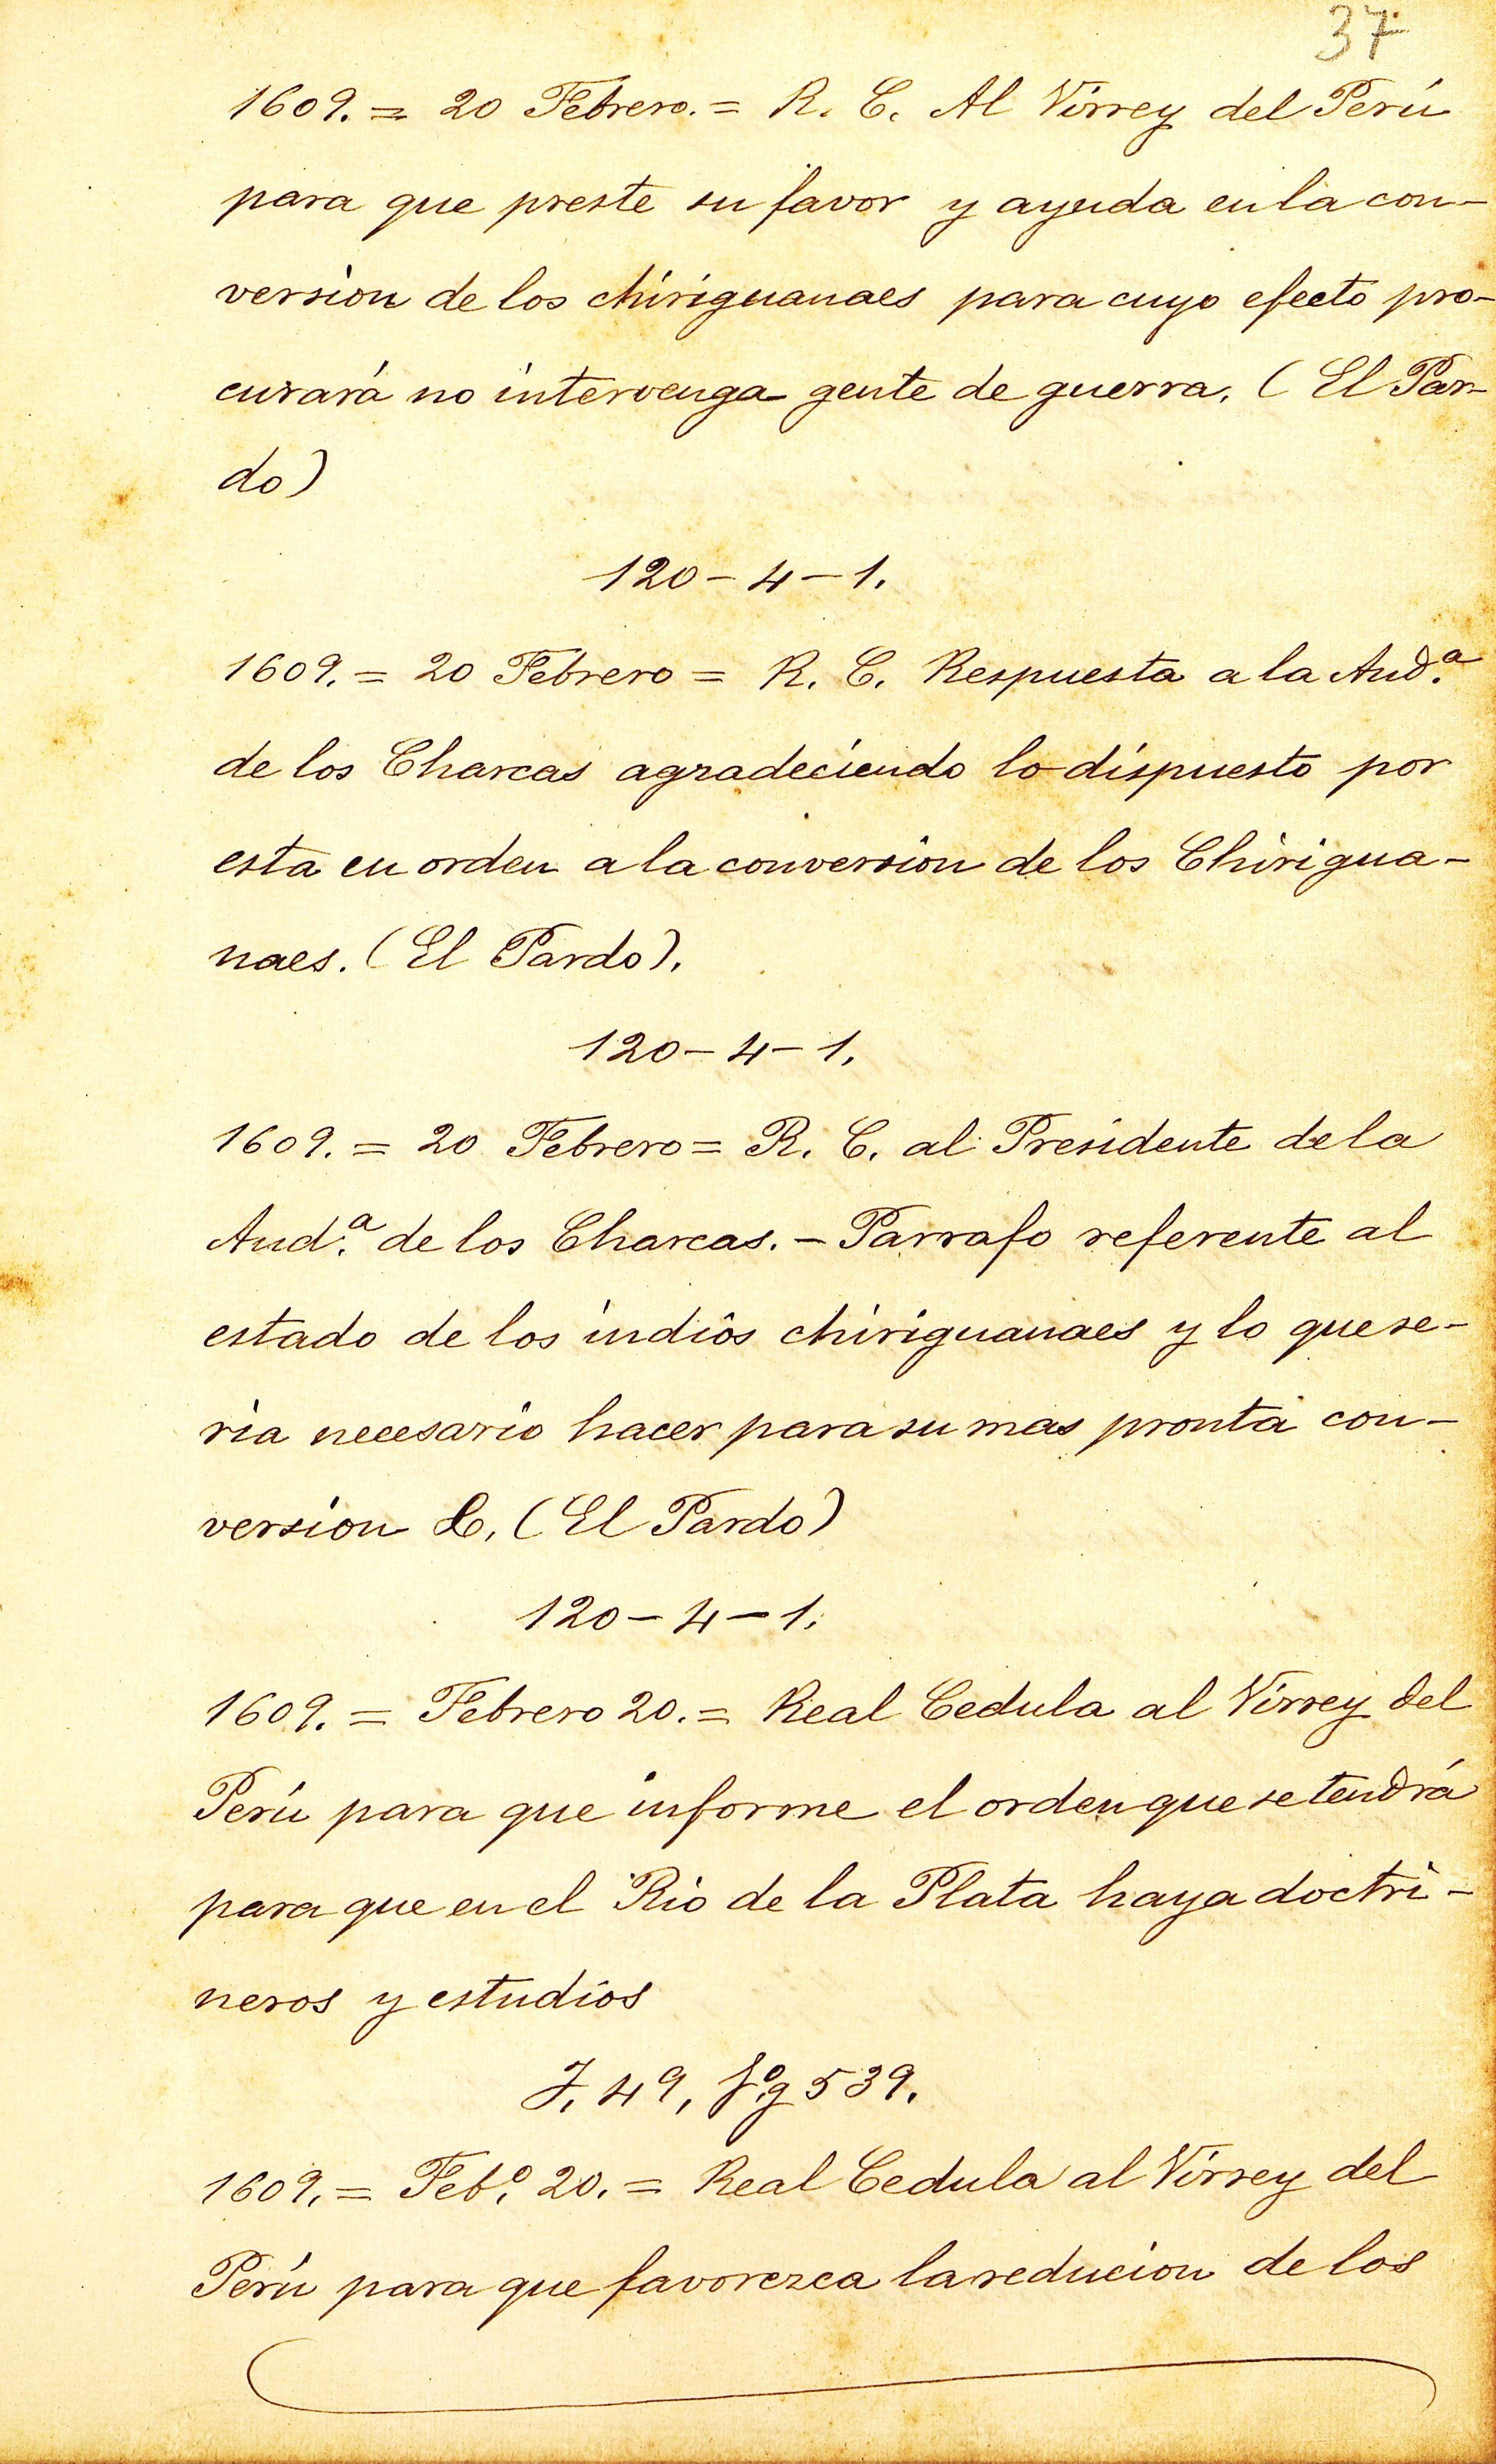 37
1609. = 20 Febrero. = R. C. Al Virrey del Perú
para que preste su favor y ayuda en la con-
version de los chiriguanaes para cuyo efecto pro-
curará no intervenga gente de guerra. (El Par-
do)
120-4-1.
1609. = 20 Febrero = R. C. Respuesta a la Aud.ª
de los Charcas agradeciendo lo dispuesto por
esta en orden a la conversion de los Chirigua-
naes. (El Pardo).
120-4-1.
1609. = 20 Febrero = R. C. al Presidente de la
Aud.ª de los Charcas. - Parrafo referente al
estado de los indios chiriguanaes y lo que se-
ria necesario hacer para su mas pronta con-
version &. (El Pardo)
120-4-1.
1609. = Febrero 20. = Real Cedula al Virrey del
Perú para que informe el orden que se tendrá
para que en el Rio de la Plata haya doctri-
neros y estudios
J. 49, 539.
1609. = Feb.º 20. = Real Cedula al Virrey del
Perú para que favorezca la reducion de los